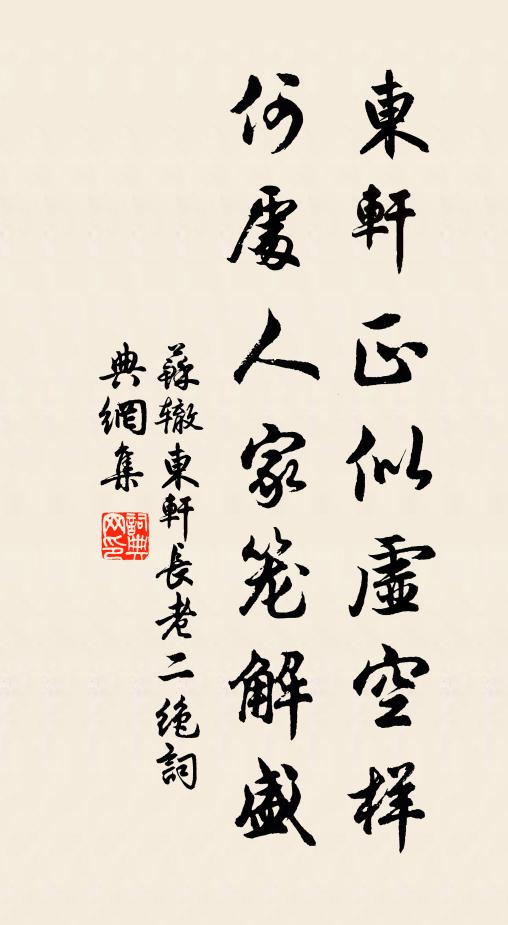 東軒正似虛空样
何處人家笼解盛
蘇辙東軒長老二絶詞
典網集
詞典
网印